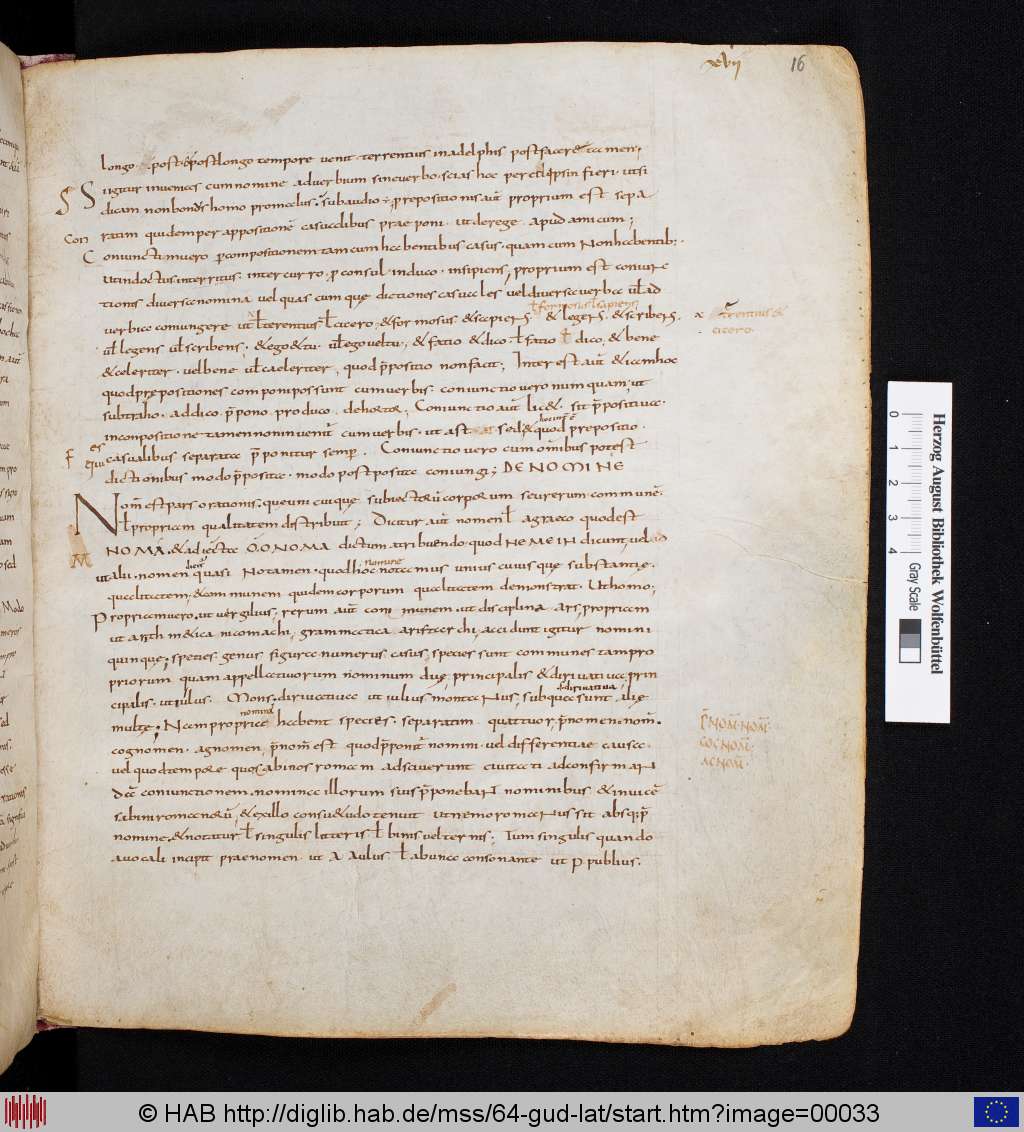 xvii 16
longo post. & post longo tempore venit terrentius in adelphis post facere & tamen;
Si igitur invenies cum nomine adverbium sine verbo. scias hoc per eclipsin fieri. ut si
dicam non bonus homo pro metus. subaudio ÷ prepositionis aut̄ proprium est sepa
Con ratim quidem per appositionē casualibus prae poni. ut de rege. apud amicum;
Coniunctim vero p compositionem tam cum habentibus casus. quam cum non habentib;.
ut indoctus interritus. intercurro. proconsul induco. insipiens; proprium est coniunc
tionis diversa nomina vel quascumque dictiones casuales vel diversa verba vł ad
ł formosus ł sapiens
verbia coniungere ut ł terentius ł cicero. & formosus. & sapiens & legens. & scribens.
terentius &
cicero.
vł legens vł scribens. & ego & tu. vł ego vel tu. & facio & dico. ł facio ł dico. & bene
& celeriter. vel bene vł caeleriter, quod p̄positio non facit; Interest aut̄ & iam hoc
quod prepositiones componi possunt cum verbis. coniunctio vero numquam. ut
subtraho. addico. p̄pono. produco. dehortor; Coniunctio aut̄ licet sit p̄positiva.
in conpositione tamen non invenit cum verbis. ut ast sed & quod prepositio.
casualibus separata p̄ponitur semp̄. Coniunctio vero cum omībus potest
dictionibus modo p̄posita. modo postposita coniungi; DE NOMINE
Nom̄ est pars orationis. que uni cuique subiectorū corporum seu rerum communē.
ł propriam qualitatem distribuit; Dicitur aut̄ nomen ł a graeco quod est
NOMA. & adiecta O. ONOMA dictum a tribuendo. quod NEMEIN dicunt; vel
nomine
ut alii. nomen quasi notamen. quod hoc notamus unius cuiusque substantię.
qualitatem. & communem quidem corporum qualitatem demonstrat. Ut homo;
Propriam vero. ut vergilius, rerum aut̄ communem. ut disciplina ars; propriam
ut arithmetica nicomachi, grammatica aristarchi; accidunt igitur nomini
quinque; species genus figura numerus casus; species sunt communes tam pro
priorum. quam appellativorum nominum duę; principalis & dirivativa; prin
dirivativa
cipalis. ut iulus. Mons. dirivativa ut iulius montanus; sub qua sunt alię
nomina
multę; Nam propriae habent species. separatim quattuor; p̄nomen. nom̄.
P̄NOM̄. NOM̄.
COCNOM̄.
ACNOM̄.
cognomen. agnomen; p̄nom̄ est quod p̄ponit̄ nomini. vel differentiae causa.
vel quod tempore quo sabinos romam adsciverunt civitati ad confirman
dā coniunctionem. nomina illorum suis p̄ponebant nominibus & invicē
sabini romanorū; & ex illo consuetudo tenuit ut nemo romanus sit absq; p̄
nomine; & notatur ł singulis litteris ł binis vel ternis; Tum singulis quando
a vocali incipit praenomen. ut A Aulus. ł ab una consonante ut P publius.
Herzog August Bibliothek Wolfenbüttel
0 1 2 3 4 Gray Scale
© HAB http://diglib.hab.de/mss/64-gud-lat/start.htm?image=00033